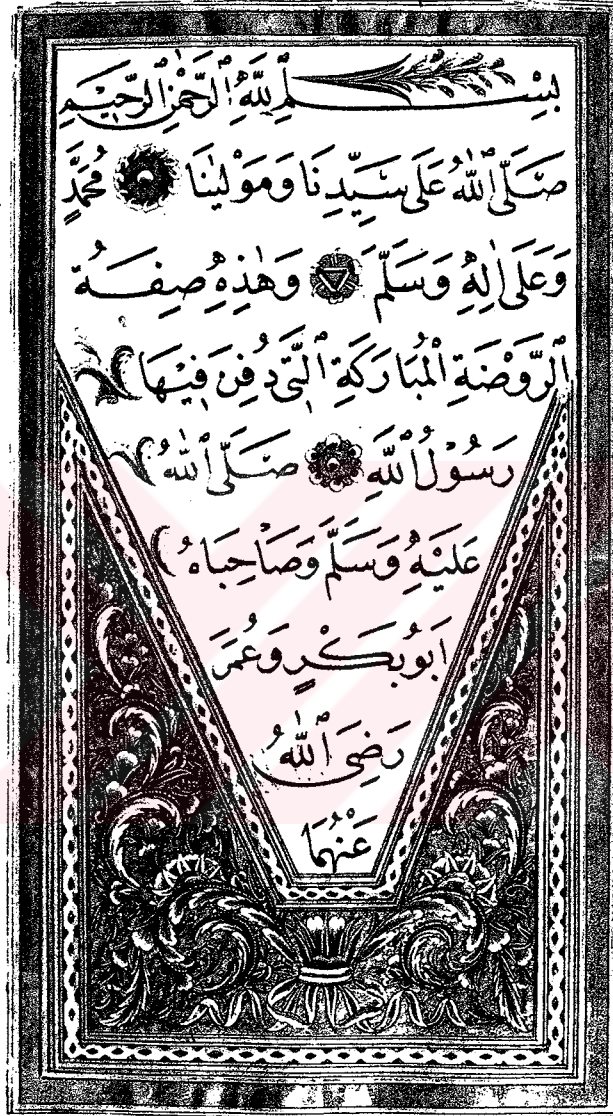 بِسْمِ ٱللَّهِ ٱلرَّحْمٰنِ ٱلرَّحِيمِ
صَلَّى ٱللّٰهُ عَلَى سَيِّدِنَا وَمَوْلٰينَا مُحَمَّدٍ
وَعَلَى اٰلِهِ وَسَلَّمَ وَهٰذِهِ صِفَةُ
ٱلرَّوْضَةِ ٱلْمُبَارَكَةِ ٱلَّتِى دُفِنَ فِيْهَا
رَسُوْلُ ٱللَّهِ صَلَّى ٱللّٰهُ
عَلَيْهِ وَسَلَّمَ وَصَاحِبَاهُ
اَبُوبَكْرٍ وَعُمَرَ
رَضِىَ ٱللّٰهُ
عَنْهُمَا